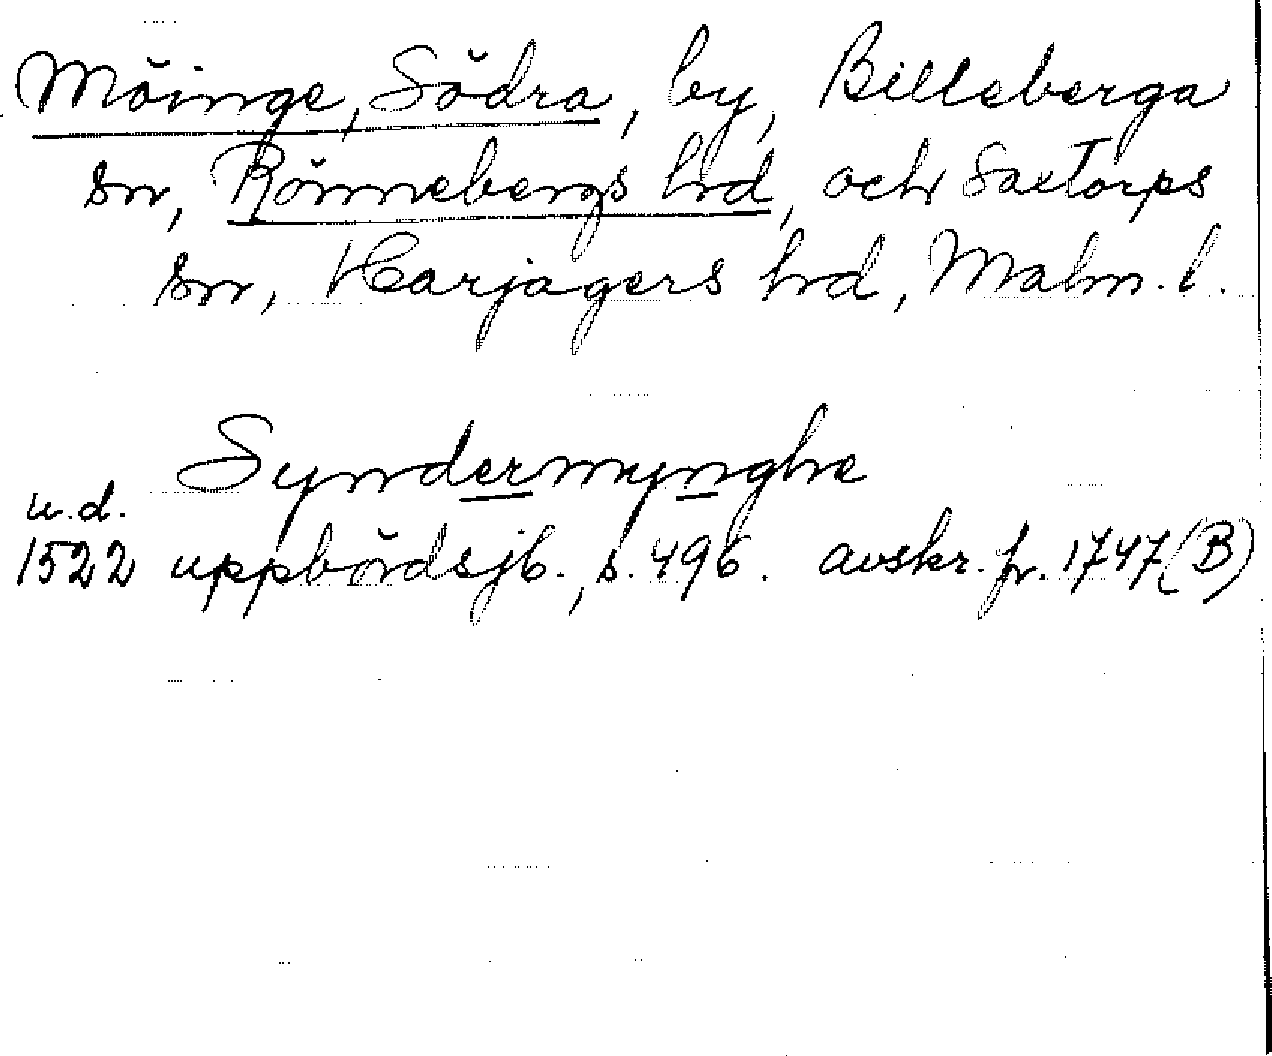 Möinge, Södra, by, Billeberga
sn, Rönnebergs hrd, och Saxtorps
sn, Harjagers hrd, Malm. l.
Syndermynghe
u.d.
1522 uppbördsjb., s. 496. avskr. fr. 1747 (B)